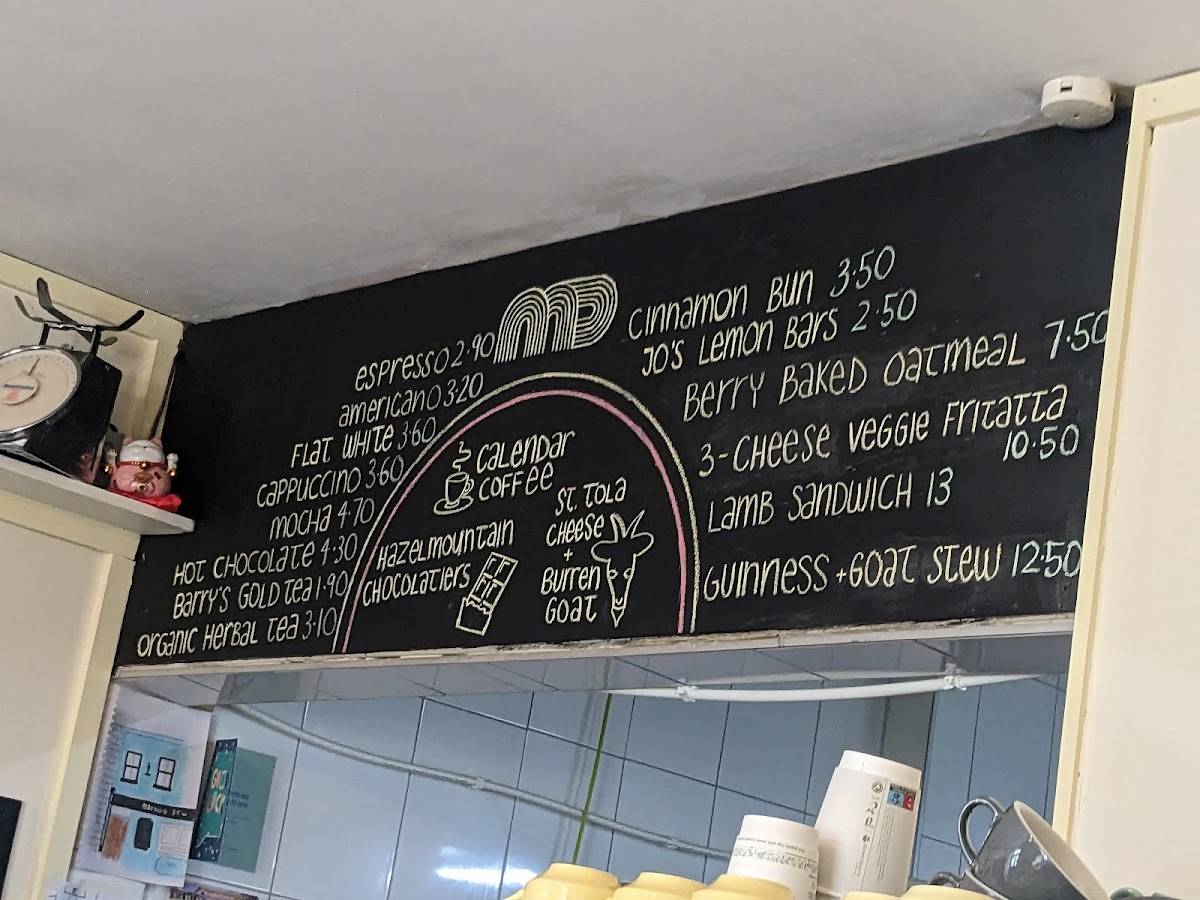 espresso 2.90
americano 3.20
FLAT WHITE 3.60
cappuccino 3.60
mocha 4.70
HOT CHOCOLATE 4.30
Barry's GOLD tea 1.90
Organic Herbal tea 3.10
CALENDAR
COFFEE
Hazelmountain
CHOCOLATIERS
ST. TOLA
CHEESE
+
Burren
GOAT
Cinnamon Bun 3.50
JO'S Lemon Bars 2.50
Berry Baked Oatmeal 7.50
3-CHEESE Veggie Fritatta
10.50
Lamb SandWICH 13
GUINNESS + GOAT Stew 12.50